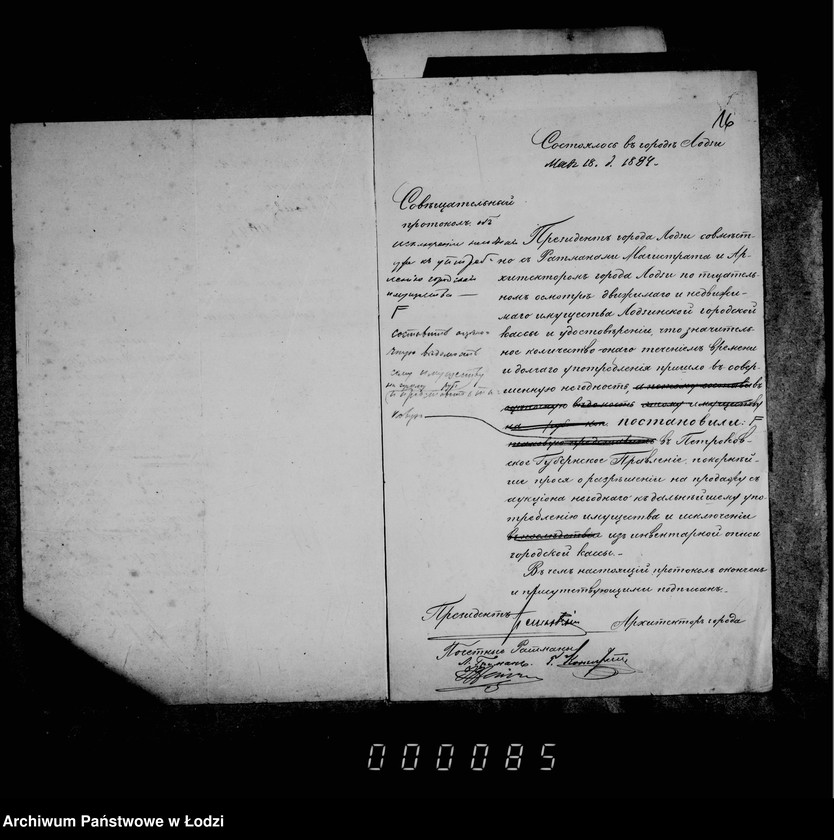 16
Состоялось въ городѣ Лодзи
Мая 18 д. 1884
Совѣщательный
протоколъ объ
исключеніи
городской
имущества —
Г
составить оцѣноч-
ную вѣдомость
сему имуществу
на сумму руб
Президентъ города Лодзи совмѣст-
но съ Ратманами Магистрата и Ар-
хитекторомъ города Лодзи по тщатель-
номъ осмотрѣ движимаго и недвижи-
маго имущества Лодзинской городской
кассы и удостовѣреніи, что значитель-
ное количество онаго теченіемъ времени
и долгаго употребленія пришло въ совер-
шенную негодность, а потому составивъ
оцѣночную вѣдомость сему имуществу
на руб коп. постановили: Г
въ Петроков-
ское Губернское Правленіе, покорнѣй-
ше прося о разрѣшеніи на продажу съ
аукціона негоднаго къ дальнѣйшему упо-
требленію имущества и исключеніи
изъ инвентарной описи
городской кассы. –
Въ чемъ настоящій протоколъ оконченъ
и присутствующими подписанъ.
Президентъ
Архитекторъ города
Почетные Ратманы
000085
Archiwum Państwowe w Łodzi